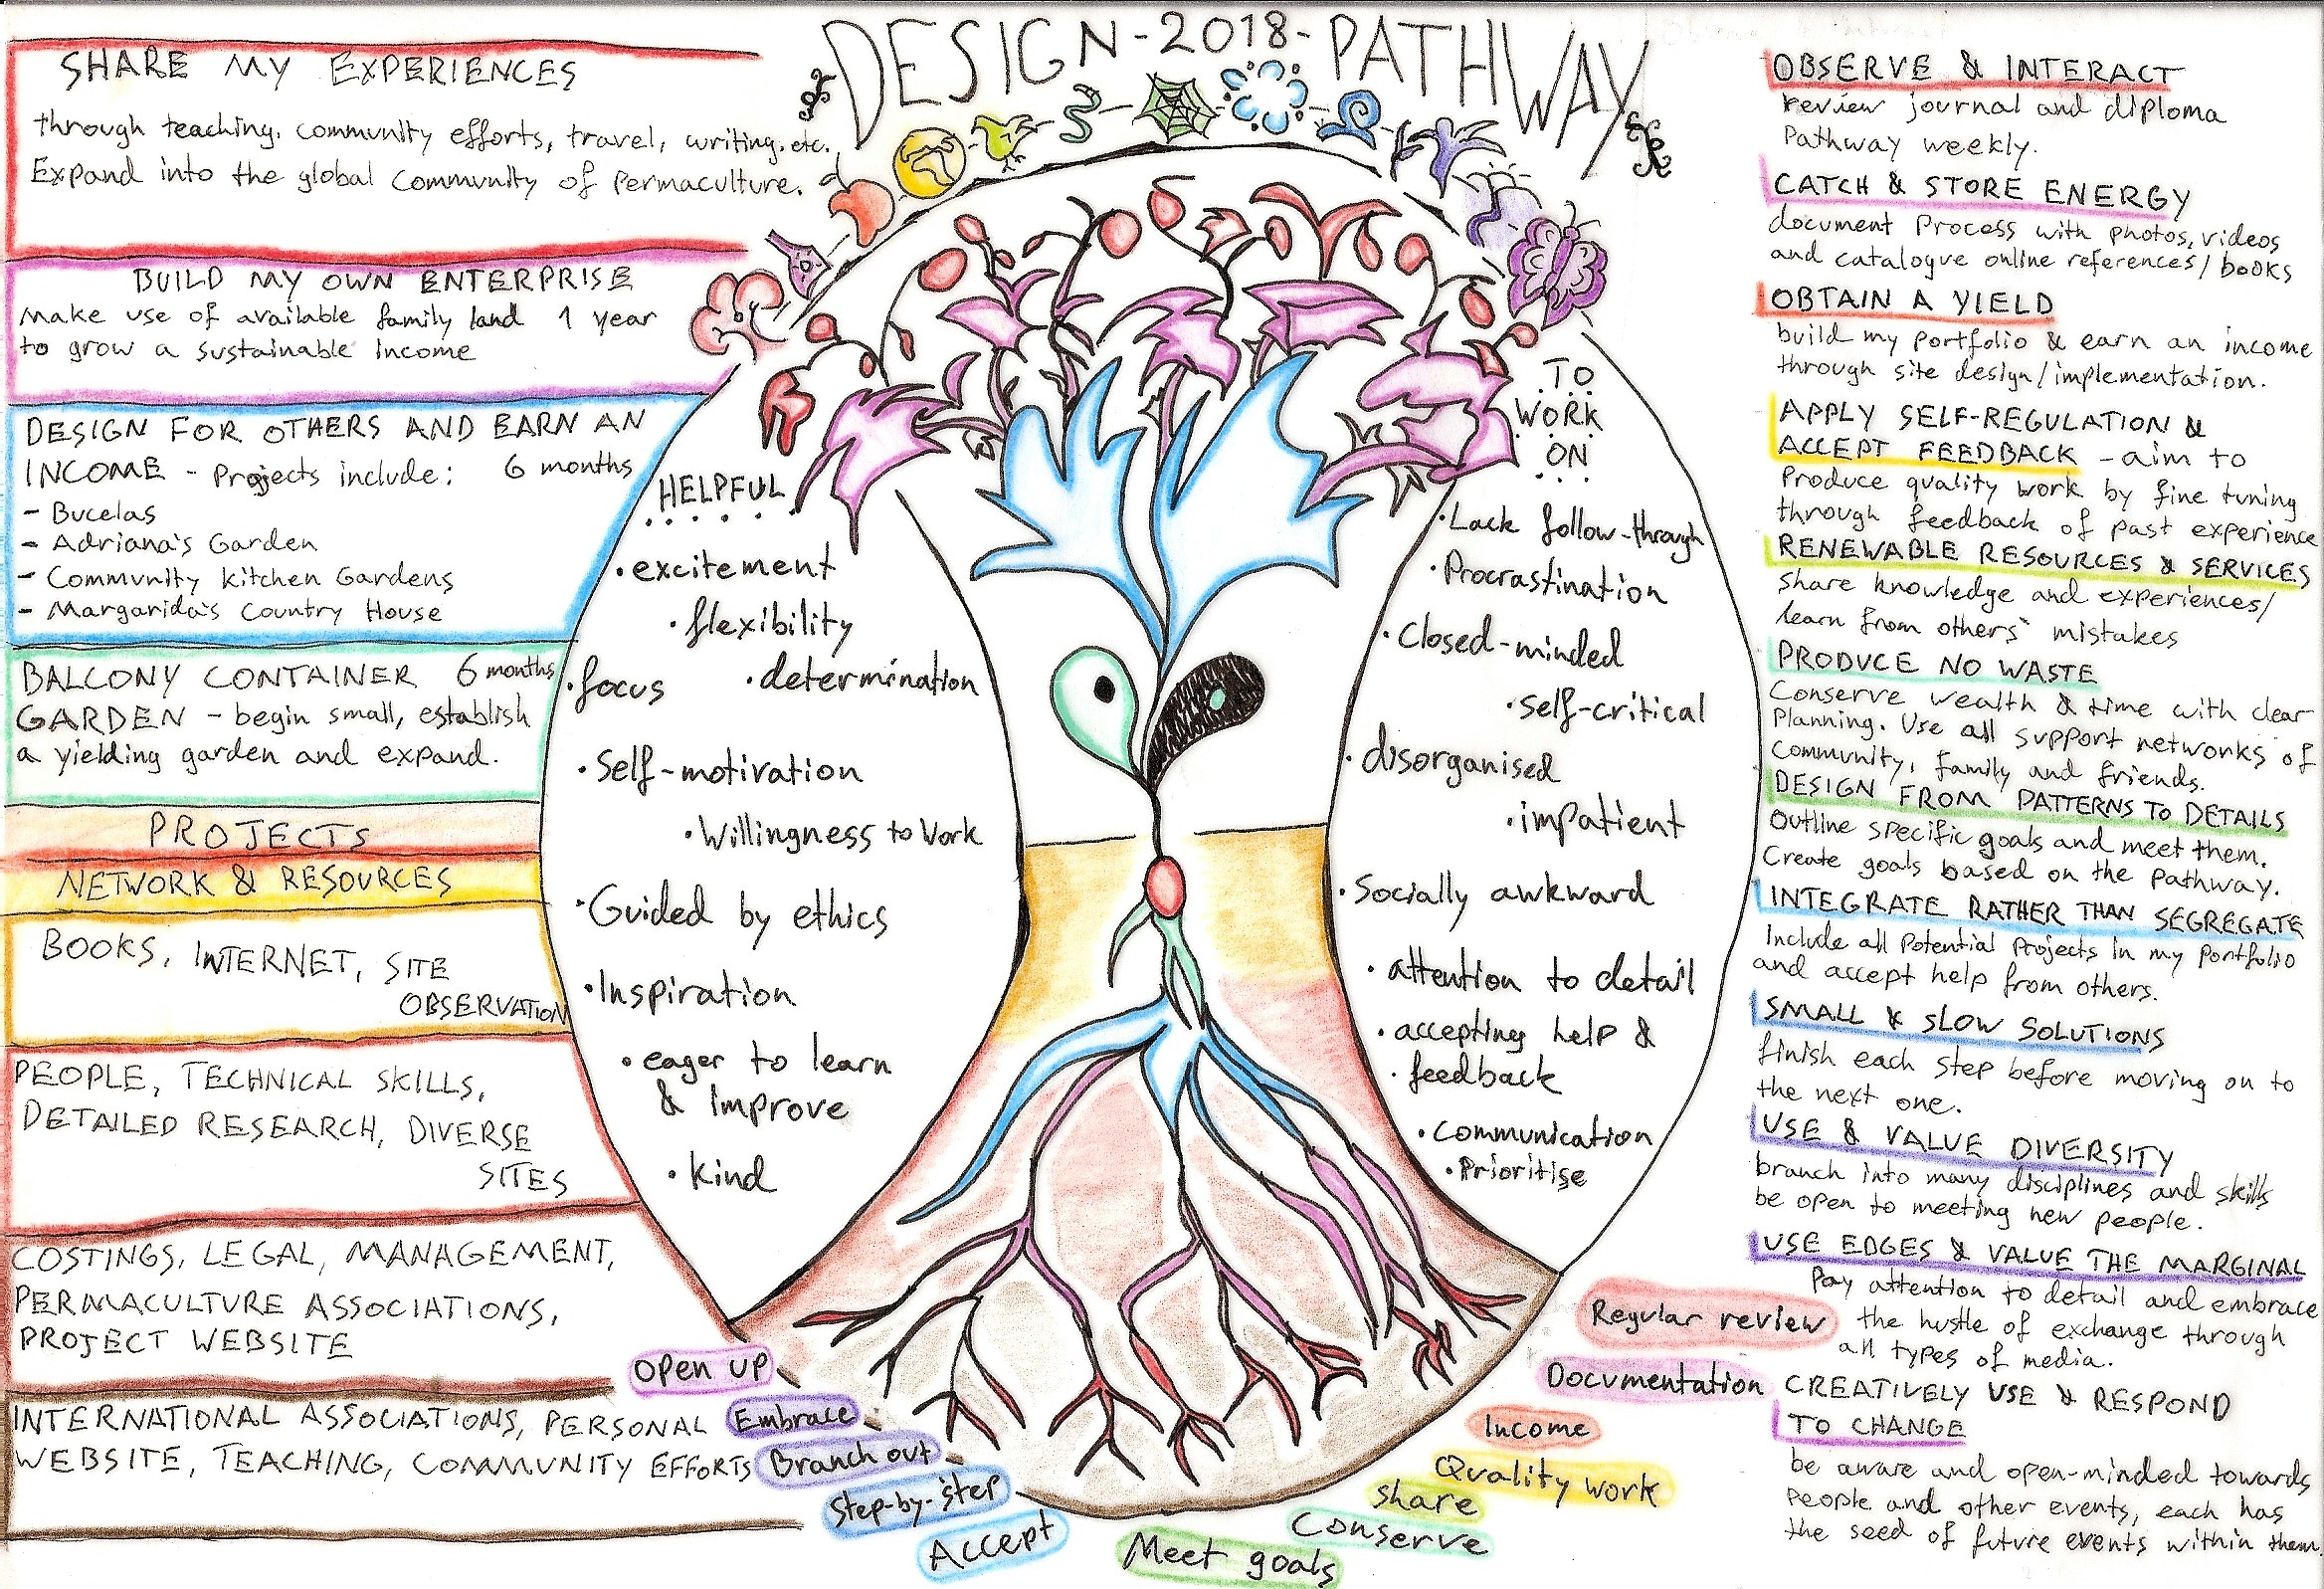 DESIGN-2018-PATHWAY
SHARE MY EXPERIENCES
through teaching, community efforts, travel, writing, etc.
Expand into the global community of permaculture.
BUILD MY OWN ENTERPRISE
Make use of available family land 1 year
to grow a sustainable income
DESIGN FOR OTHERS AND EARN AN
INCOME - Projects include: 6 months
- Bucelas
- Adriana's Garden
- Community Kitchen Gardens
- Margarida's Country House
BALCONY CONTAINER 6 months
GARDEN - begin small, establish
a yielding garden and expand.
PROJECTS
NETWORK & RESOURCES
BOOKS, INTERNET, SITE
OBSERVATION
PEOPLE, TECHNICAL SKILLS,
DETAILED RESEARCH, DIVERSE
SITES
COSTINGS, LEGAL, MANAGEMENT,
PERMACULTURE ASSOCIATIONS,
PROJECT WEBSITE
INTERNATIONAL ASSOCIATIONS, PERSONAL
WEBSITE, TEACHING, COMMUNITY EFFORTS
HELPFUL
• excitement
• flexibility
• focus
• determination
• Self-motivation
• Willingness to work
• Guided by ethics
• Inspiration
• eager to learn
& improve
• kind
TO
WORK
ON
• Lack follow-through
• Procrastination
• Closed-minded
• self-critical
• disorganised
• impatient
• Socially awkward
• attention to detail
• accepting help &
• feedback
• Communication
• Prioritise
Open up
Embrace
Branch out
Step-by-step
Accept
Meet goals
Conserve
share
Quality work
Income
Documentation
Regular review
OBSERVE & INTERACT
review journal and diploma
Pathway weekly.
CATCH & STORE ENERGY
document Process with photos, videos
and catalogue online references/books
OBTAIN A YIELD
build my portfolio & earn an income
through site design/implementation.
APPLY SELF-REGULATION &
ACCEPT FEEDBACK - aim to
Produce quality work by fine tuning
through feedback of past experience
RENEWABLE RESOURCES & SERVICES
share knowledge and experiences/
learn from others' mistakes
PRODUCE NO WASTE
Conserve wealth & time with clear
Planning. Use all support networks of
Community, family and friends.
DESIGN FROM PATTERNS TO DETAILS
Outline specific goals and meet them.
Create goals based on the pathway.
INTEGRATE RATHER THAN SEGREGATE
Include all Potential Projects in my portfolio
and accept help from others.
SMALL & SLOW SOLUTIONS
finish each step before moving on to
the next one.
USE & VALUE DIVERSITY
branch into many disciplines and skills
be open to meeting new people.
USE EDGES & VALUE THE MARGINAL
Pay attention to detail and embrace
the hustle of exchange through
all types of media.
CREATIVELY USE & RESPOND
TO CHANGE
be aware and open-minded towards
People and other events, each has
the seed of future events within them.